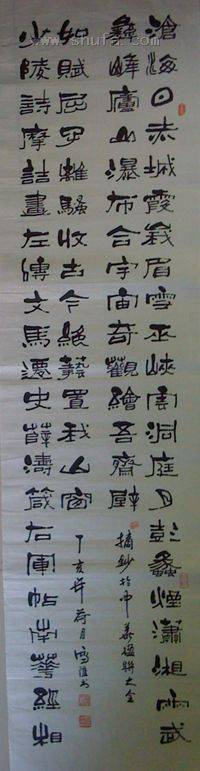 滄海日赤城霞峩眉雪巫峽雲洞庭月彭蠡煙瀟湘雨武
彝峰廬山瀑布合宇宙奇觀繪吾齋壁
摘鈔於中華楹聯大全
少陵詩摩詰畫左傳文馬遷史薛濤箋右軍帖南華經相
如賦屈子離騷收古今絕藝置我山窗
丁亥年荷月雪書